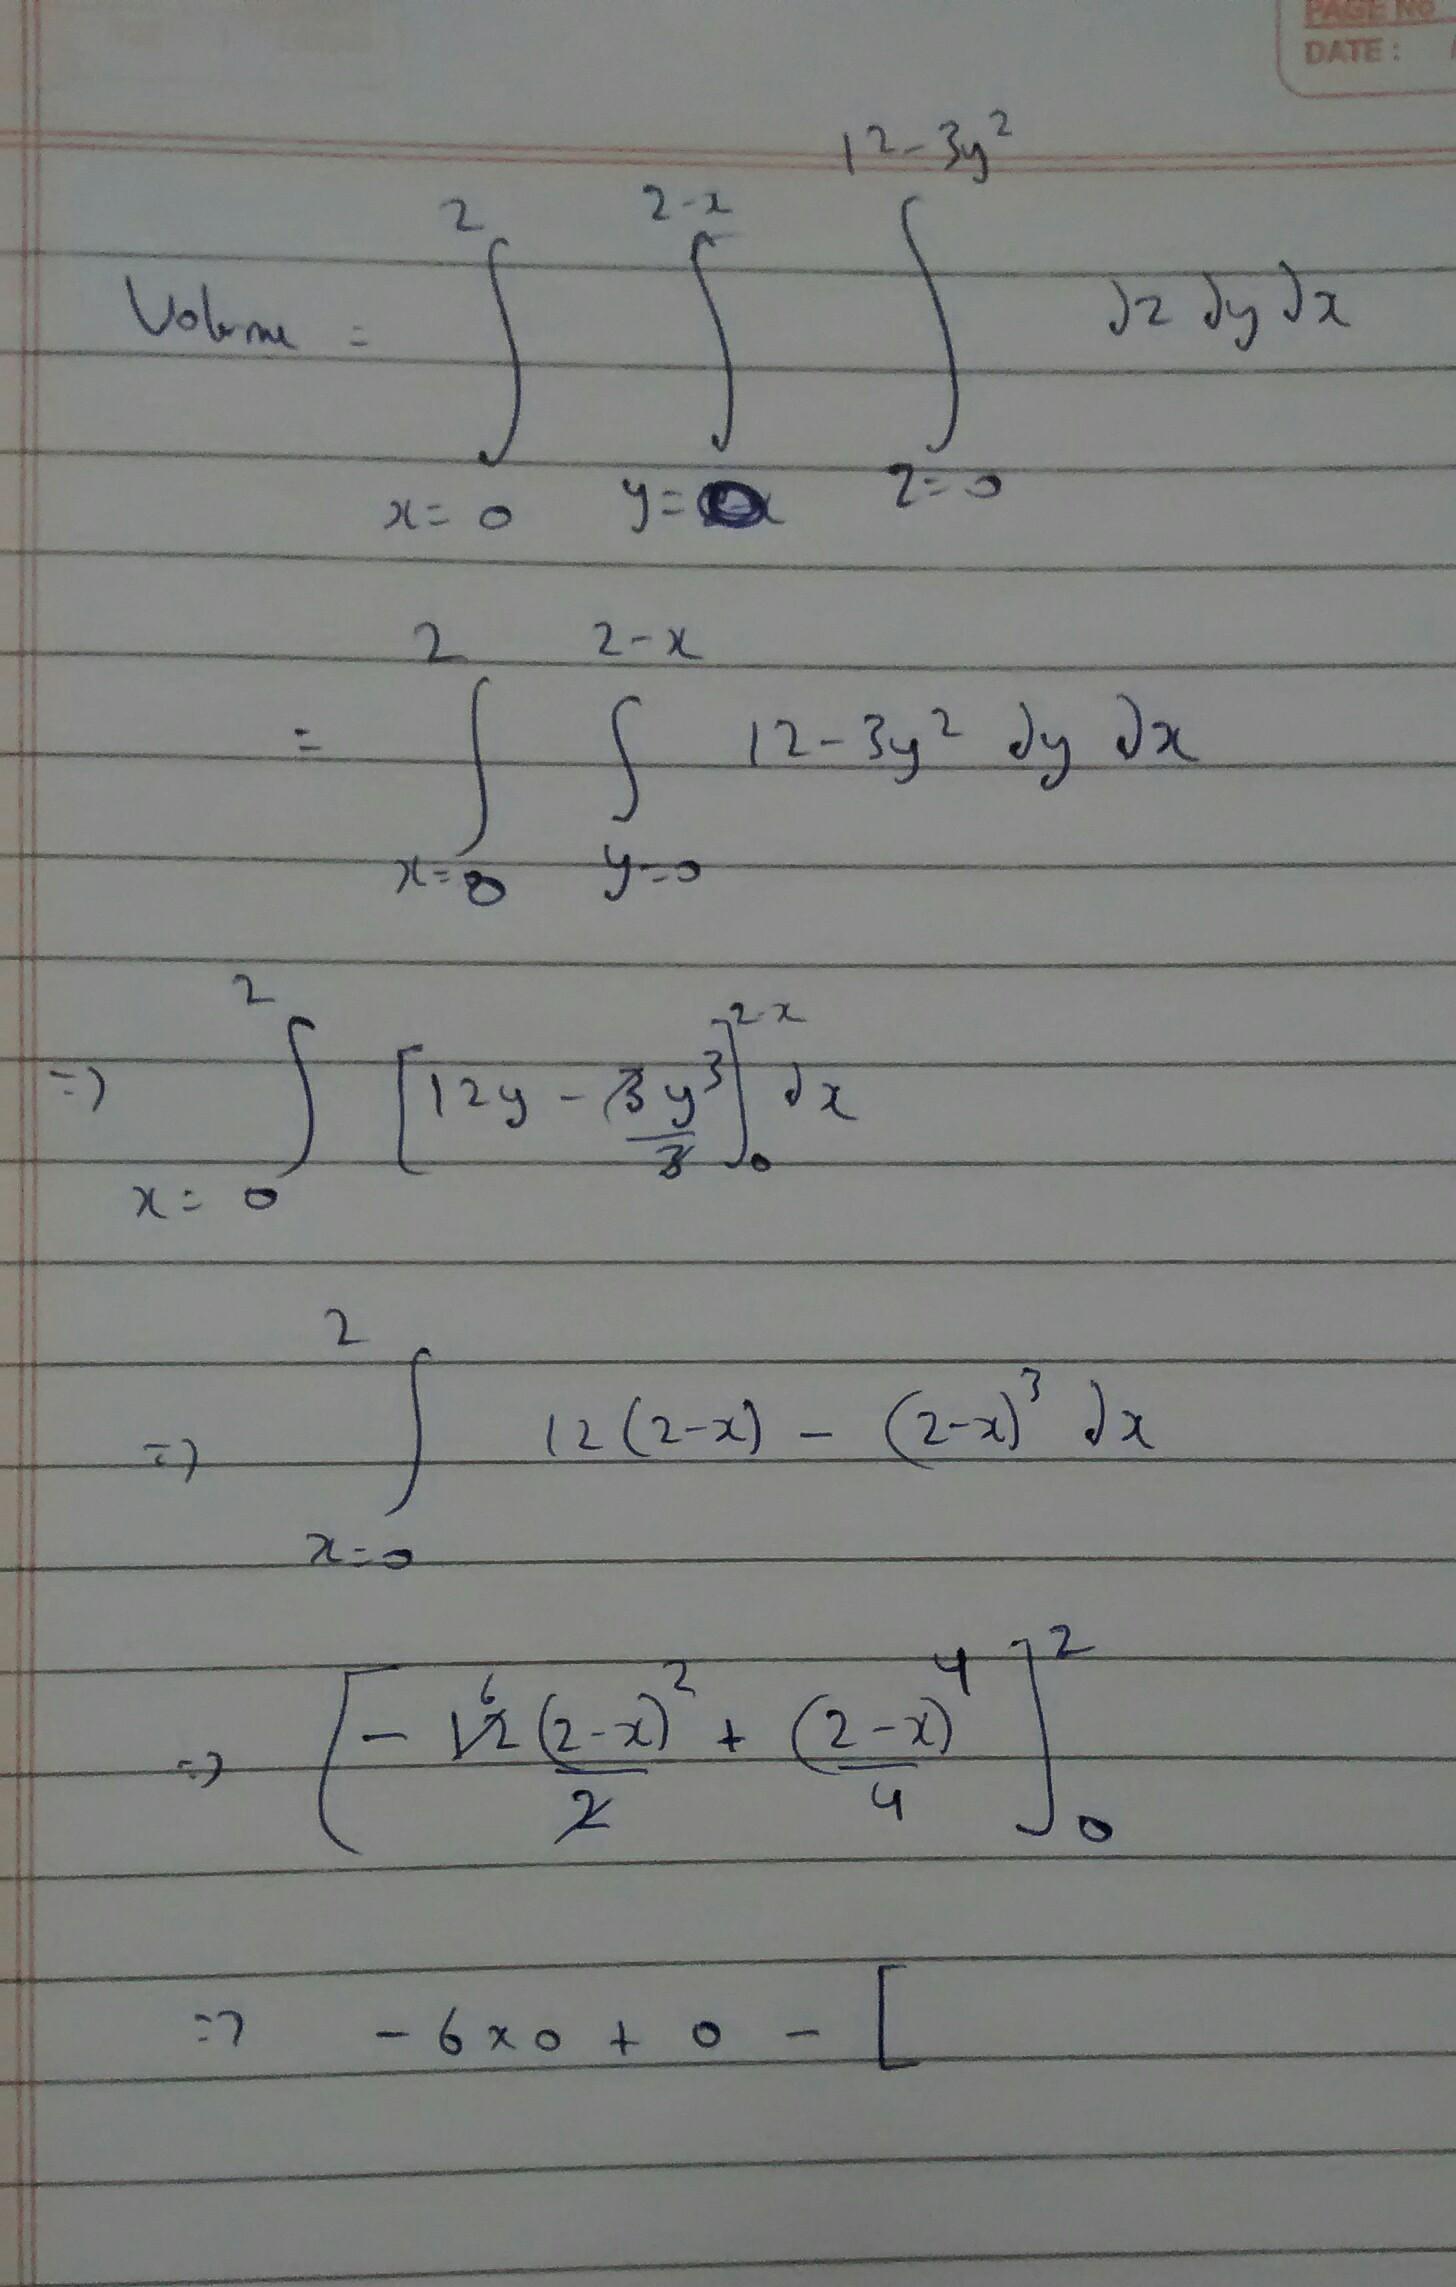 PAGE No
DATE :
Volume = ∫_{x=0}^{2} ∫_{y=0}^{2-x} ∫_{z=0}^{12-3y²} dz dy dx
= ∫_{x=0}^{2} ∫_{y=0}^{2-x} 12-3y² dy dx
=> ∫_{x=0}^{2} [12y - 3y³/3]_{0}^{2-x} dx
=> ∫_{x=0}^{2} 12(2-x) - (2-x)³ dx
=> [- 12 6 (2-x)²/2 + (2-x)⁴/4]_{0}^{2}
=> - 6 x 0 + 0 - [